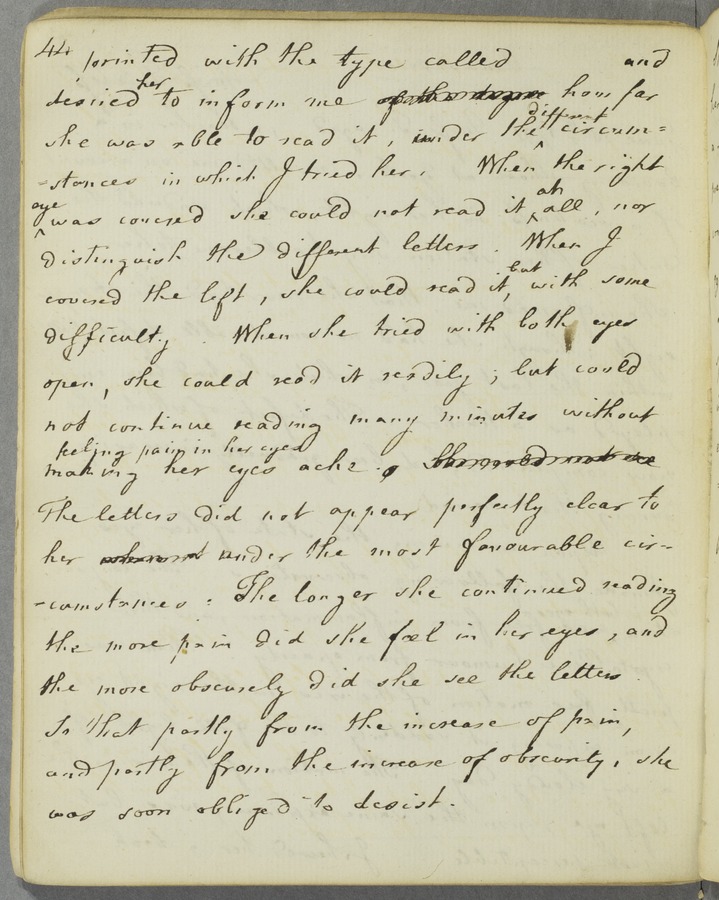 44
printed with the type called and
desired her to inform me how far
she was able to read it, under the different circum=
=stances in which I tried her. When the right
eye was covered she could not read it at all, nor
distinguish the different letters. When I
covered the left, she could read it, but with some
difficulty. When she tried with both eyes
open, she could read it readily; but could
not continue reading many minutes without
feeling pain in her eyes
making her eyes ache.
The letters did not appear perfectly clear to
her under the most favourable cir=
=cumstances. The longer she continued reading
the more pain did she feel in her eyes, and
the more obscurely did she see the letters.
So that partly from the increase of pain,
and partly from the increase of obscurity, she
was soon obliged to desist.